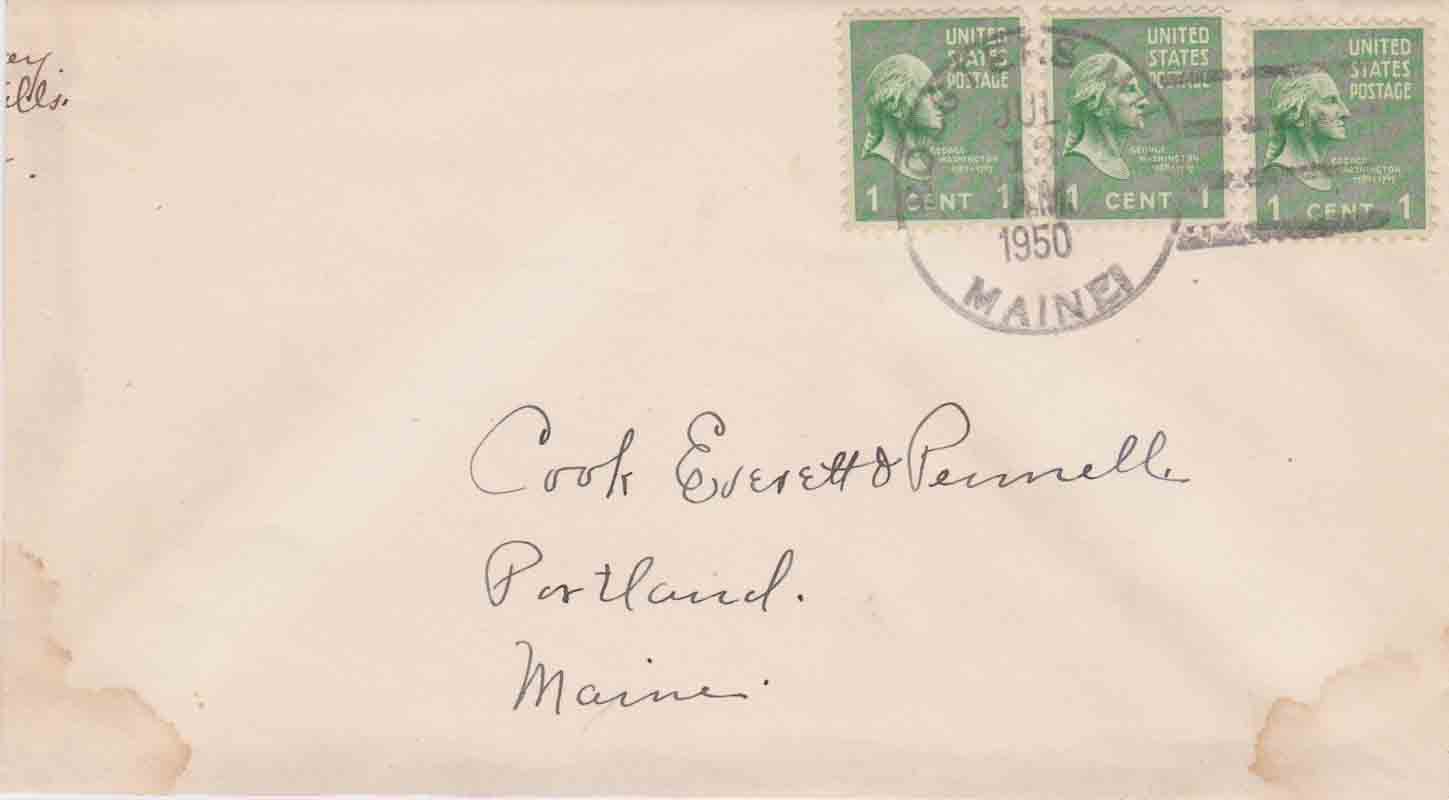 ey
ills.
UNITED
STATES
POSTAGE
GEORGE
WASHINGTON
1 CENT 1
UNITED
STATES
POSTAGE
GEORGE
WASHINGTON
1 CENT 1
UNITED
STATES
POSTAGE
GEORGE
WASHINGTON
1 CENT 1
JUL
1950
MAINE
Cook Everett & Pennell
Portland.
Maine.